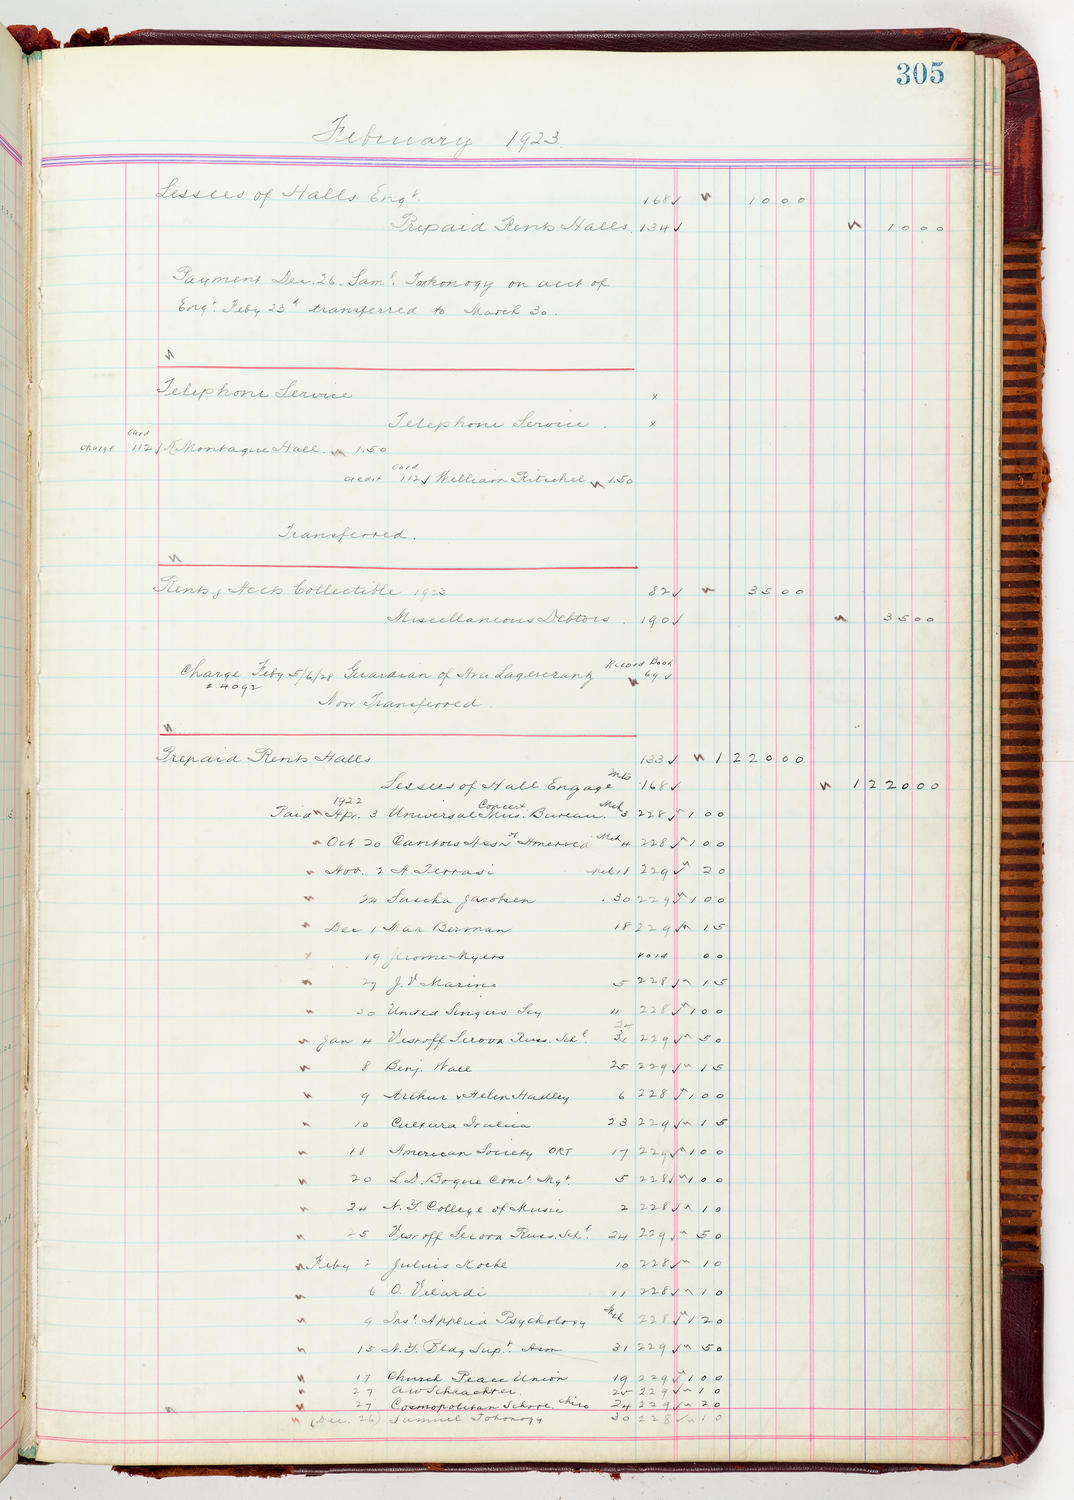 305
February 1923.
Lessees of Halls Engt. 168 1000
Prepaid Rents Halls. 134 1000
Payment Dec. 26. Saml. Torkonogy on acct of
Engt. Feby 23d transferred to March 30.
Telephone Service x
Telephone Service. x
Card
Charge 112 Montague Hall. 1.50
Card
credit 112 William Ritschel 1.50
Transferred.
Rents, Accts Collectible 1923 82 3500
Miscellaneous Debtors. 190 3500
Record Book
Charge Feby 5/6/28 Guardian of Ava Lagercranz 69
# 4092
Now Transferred.
Prepaid Rents Halls 133 122000
Lessees of Hall Engagemts 168 122000
1922
Paid Apr. 3 Universal Concert Mus. Bureau. Mch 3 228 100
Oct 20 Cantors Assn of America Mch 4 228 100
Nov. 2 A. Terrasi 229 20
24 Sascha Jacobsen . 30 229 100
Dec 1 Max Berman 18 229 15
19 Jerome Myers void 00
27 J. V. Marino 5 228 15
30 United Singers Soy 11 228 100
24
Jan 4 Vestoff Serova Russ. Schl. 229 50
8 Benj. Wall 25 229 15
9 Arthur & Helen Hadley 6 228 100
10 Cultura Italica 23 229 15
11 American Society ORT 17 229 100
20 L. D. Bogue Conct Mgt. 5 228 100
24 N. Y. College of Music 2 228 10
25 Vestoff Serova Russ. Schl. 24 229 50
Feby 2 Julius Koehl 10 228 10
6 O. Vilardi 11 228 10
9 Inst. Applied Psychology Mch 228 120
15 N. Y. Bldg Supt. Assn 31 229 50
17 Church Peace Union 19 229 100
27 A W Schlachter. 25 229 10
27 Cosmopolitan School. 24 229 20
(Dec. 26) Samuel Tokonogy 30 228 10